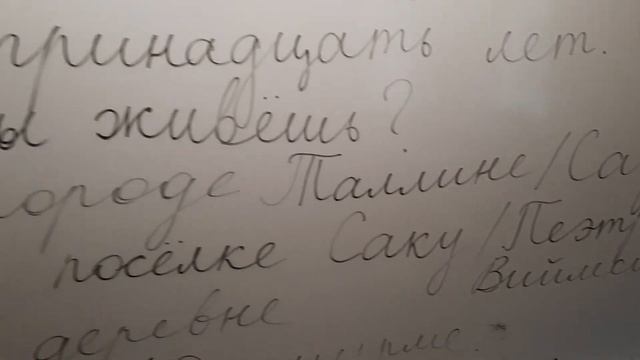 тринадцать лет.
ы живёшь?
городе Таллине/Са
посёлке Саку/Пеэт
деревне Виймси